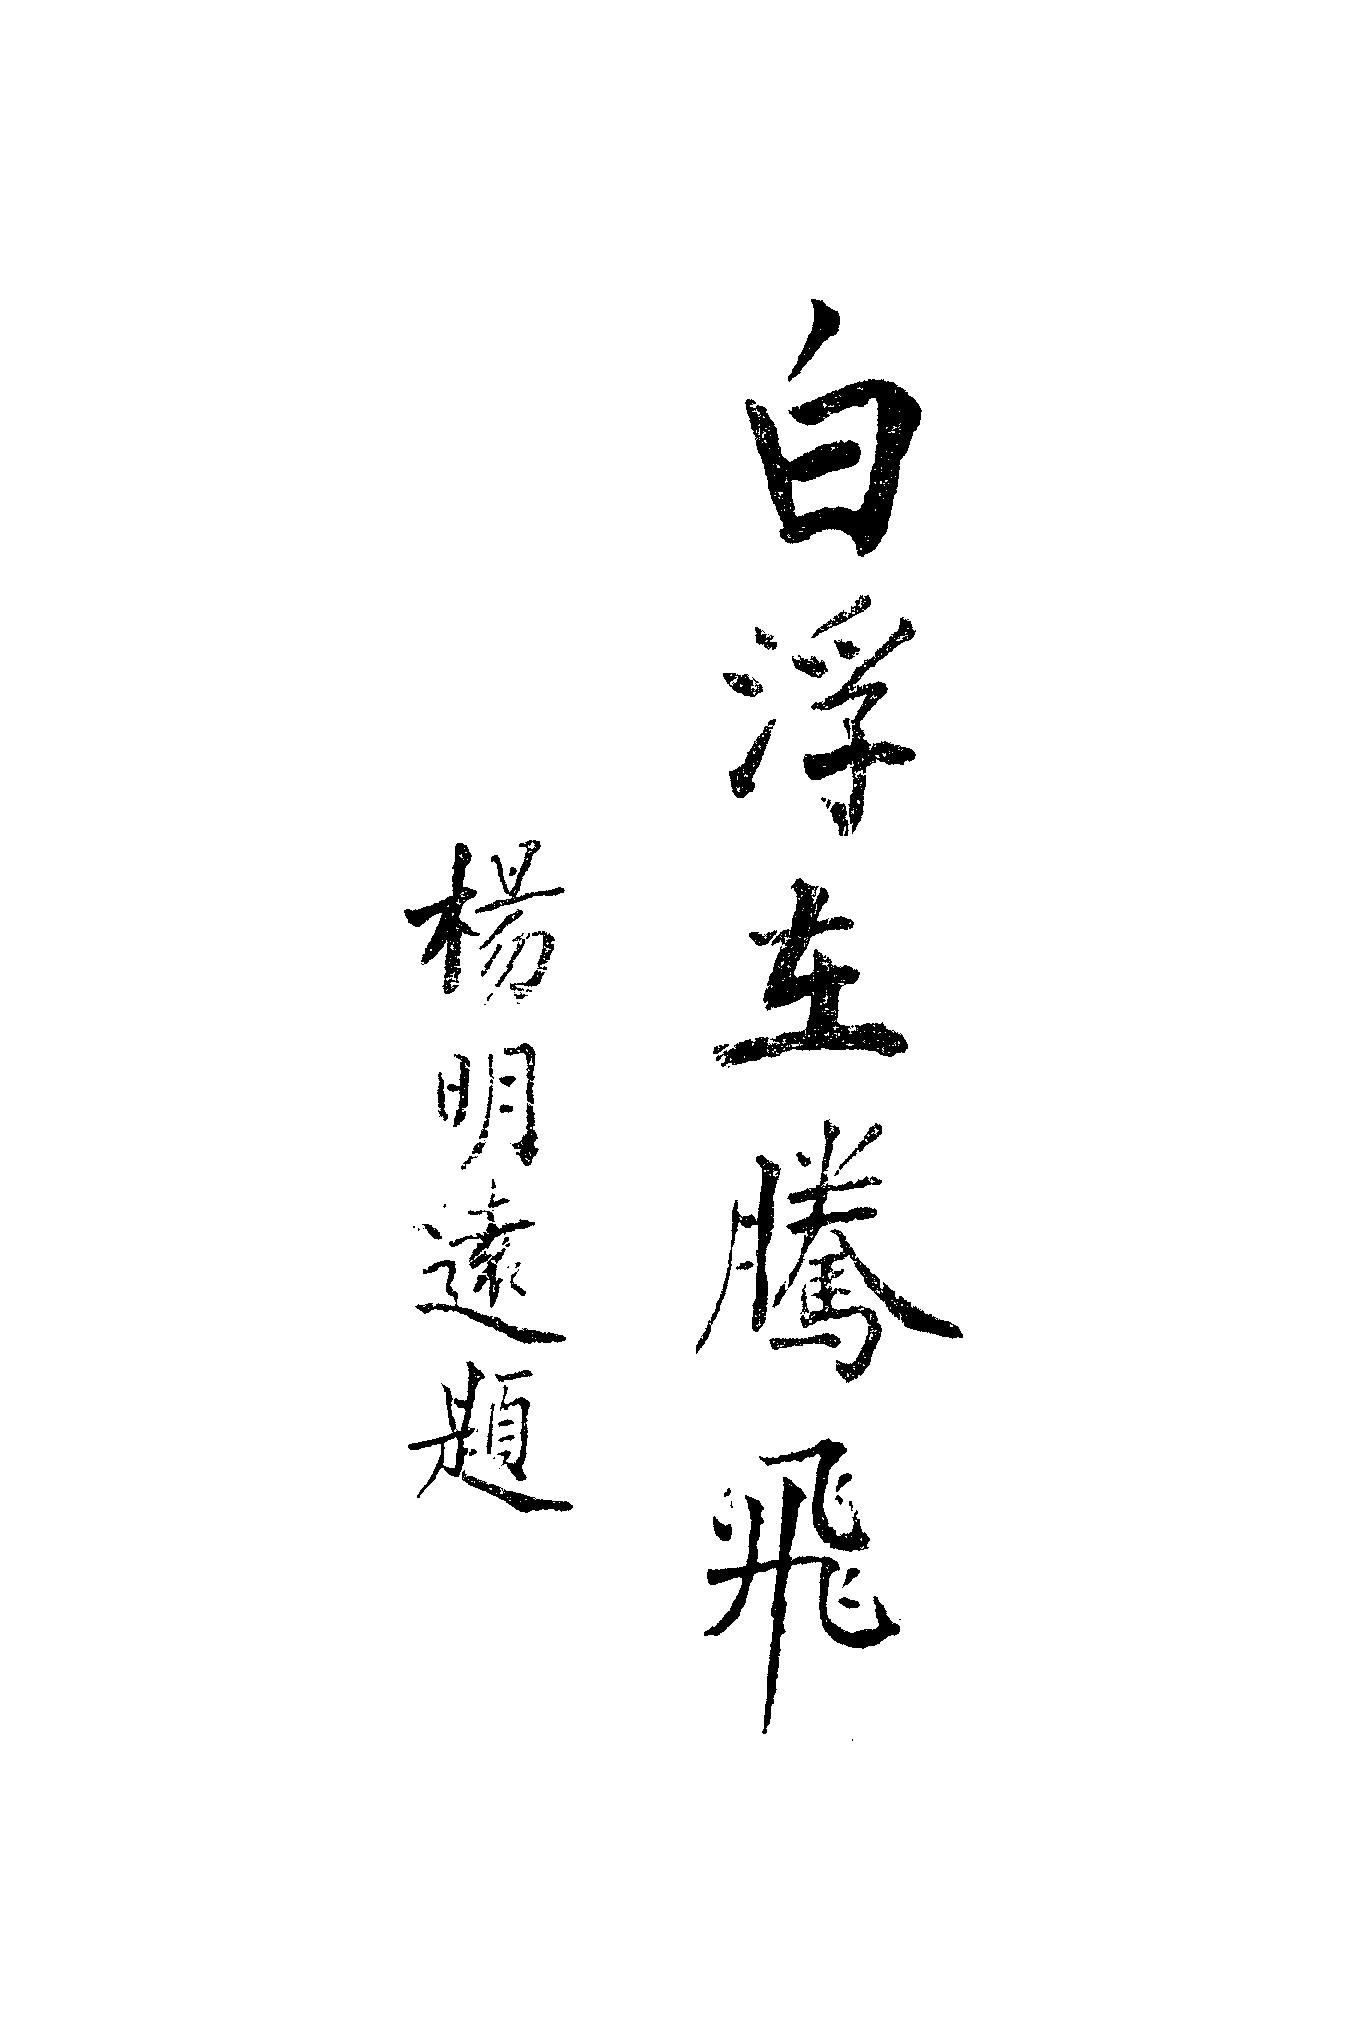 白浮在騰飛
楊明遠題